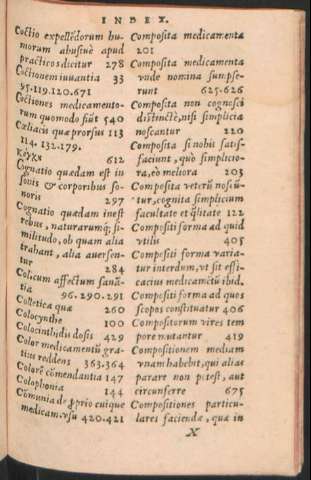 INDEX.
Coctio expellẽdorum hu-
morum abusiuè apud
practicos dicitur 278
Coctionem iuuantia 33
95.119.120.671
Coctiones medicamento-
rum quomodo fiũt 540
Cœliacis quæ prorsus 113
114. 132.179.
κόγχη 612
Cognatio quædam est in
sonis & corporibus so-
noris 297
Cognatio quædam inest
rebus, naturarumq; si-
militudo, ob quam alia
trahant, alia auersen-
tur 284
Colicum affectum sanã-
tia 96.290.291
Colletica quæ 260
Colocynthe 100
Colocinthidis dosis 429
Color medicamentũ gra-
tius reddens 363.364
Colorẽ cõmendantia 147
Colophonia 144
Cõmunia de proprio cuique
medicam. vsu 420.421
Composita medicamenta
201
Composita medicamenta
vnde nomina sumpse-
runt 625-626
Composita non cognosci
distinctè, nisi simplicia
noscantur 120
Composita si nobis satis-
faciunt, quò simplicio-
ra, eò meliora 203
Composita veterũ noscũ-
tur, cognita simplicium
facultate et qlitate 122
Compositi forma ad quid
vtilis 405
Compositi forma varia-
tur interdum, vt sit effi-
cacius medicamẽtũ ibid.
Compositi forma ad quos
scopos constituatur 406
Compositorum vires tem
pore mutantur 419
Compositionem mediam
vnam habebit, qui alias
parare non potest, aut
circunferre 675
Compositiones particu-
lares faciendæ, quæ in
X